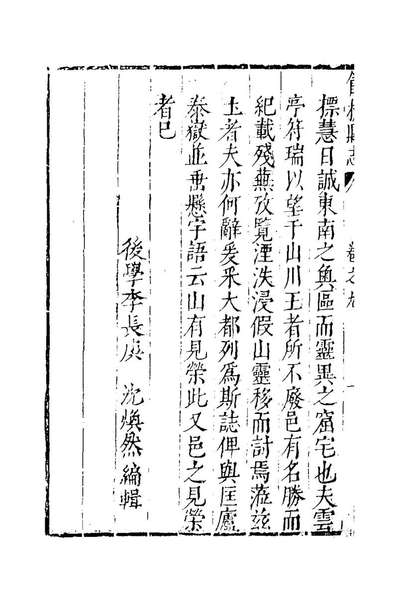 標慧日誠東南之奥區而靈異之窟宅也夫雲
亭符瑞以望于山川王者所不廢邑有名勝而
紀載殘蕪攷覧湮泆浸假山靈移而討焉蒞兹
土者夫亦何辭爰釆大都列爲斯誌俾與匡廬
泰嶽並垂懸字語云山有見榮此又邑之見榮
者已
後學李長庚 沈煥然編輯